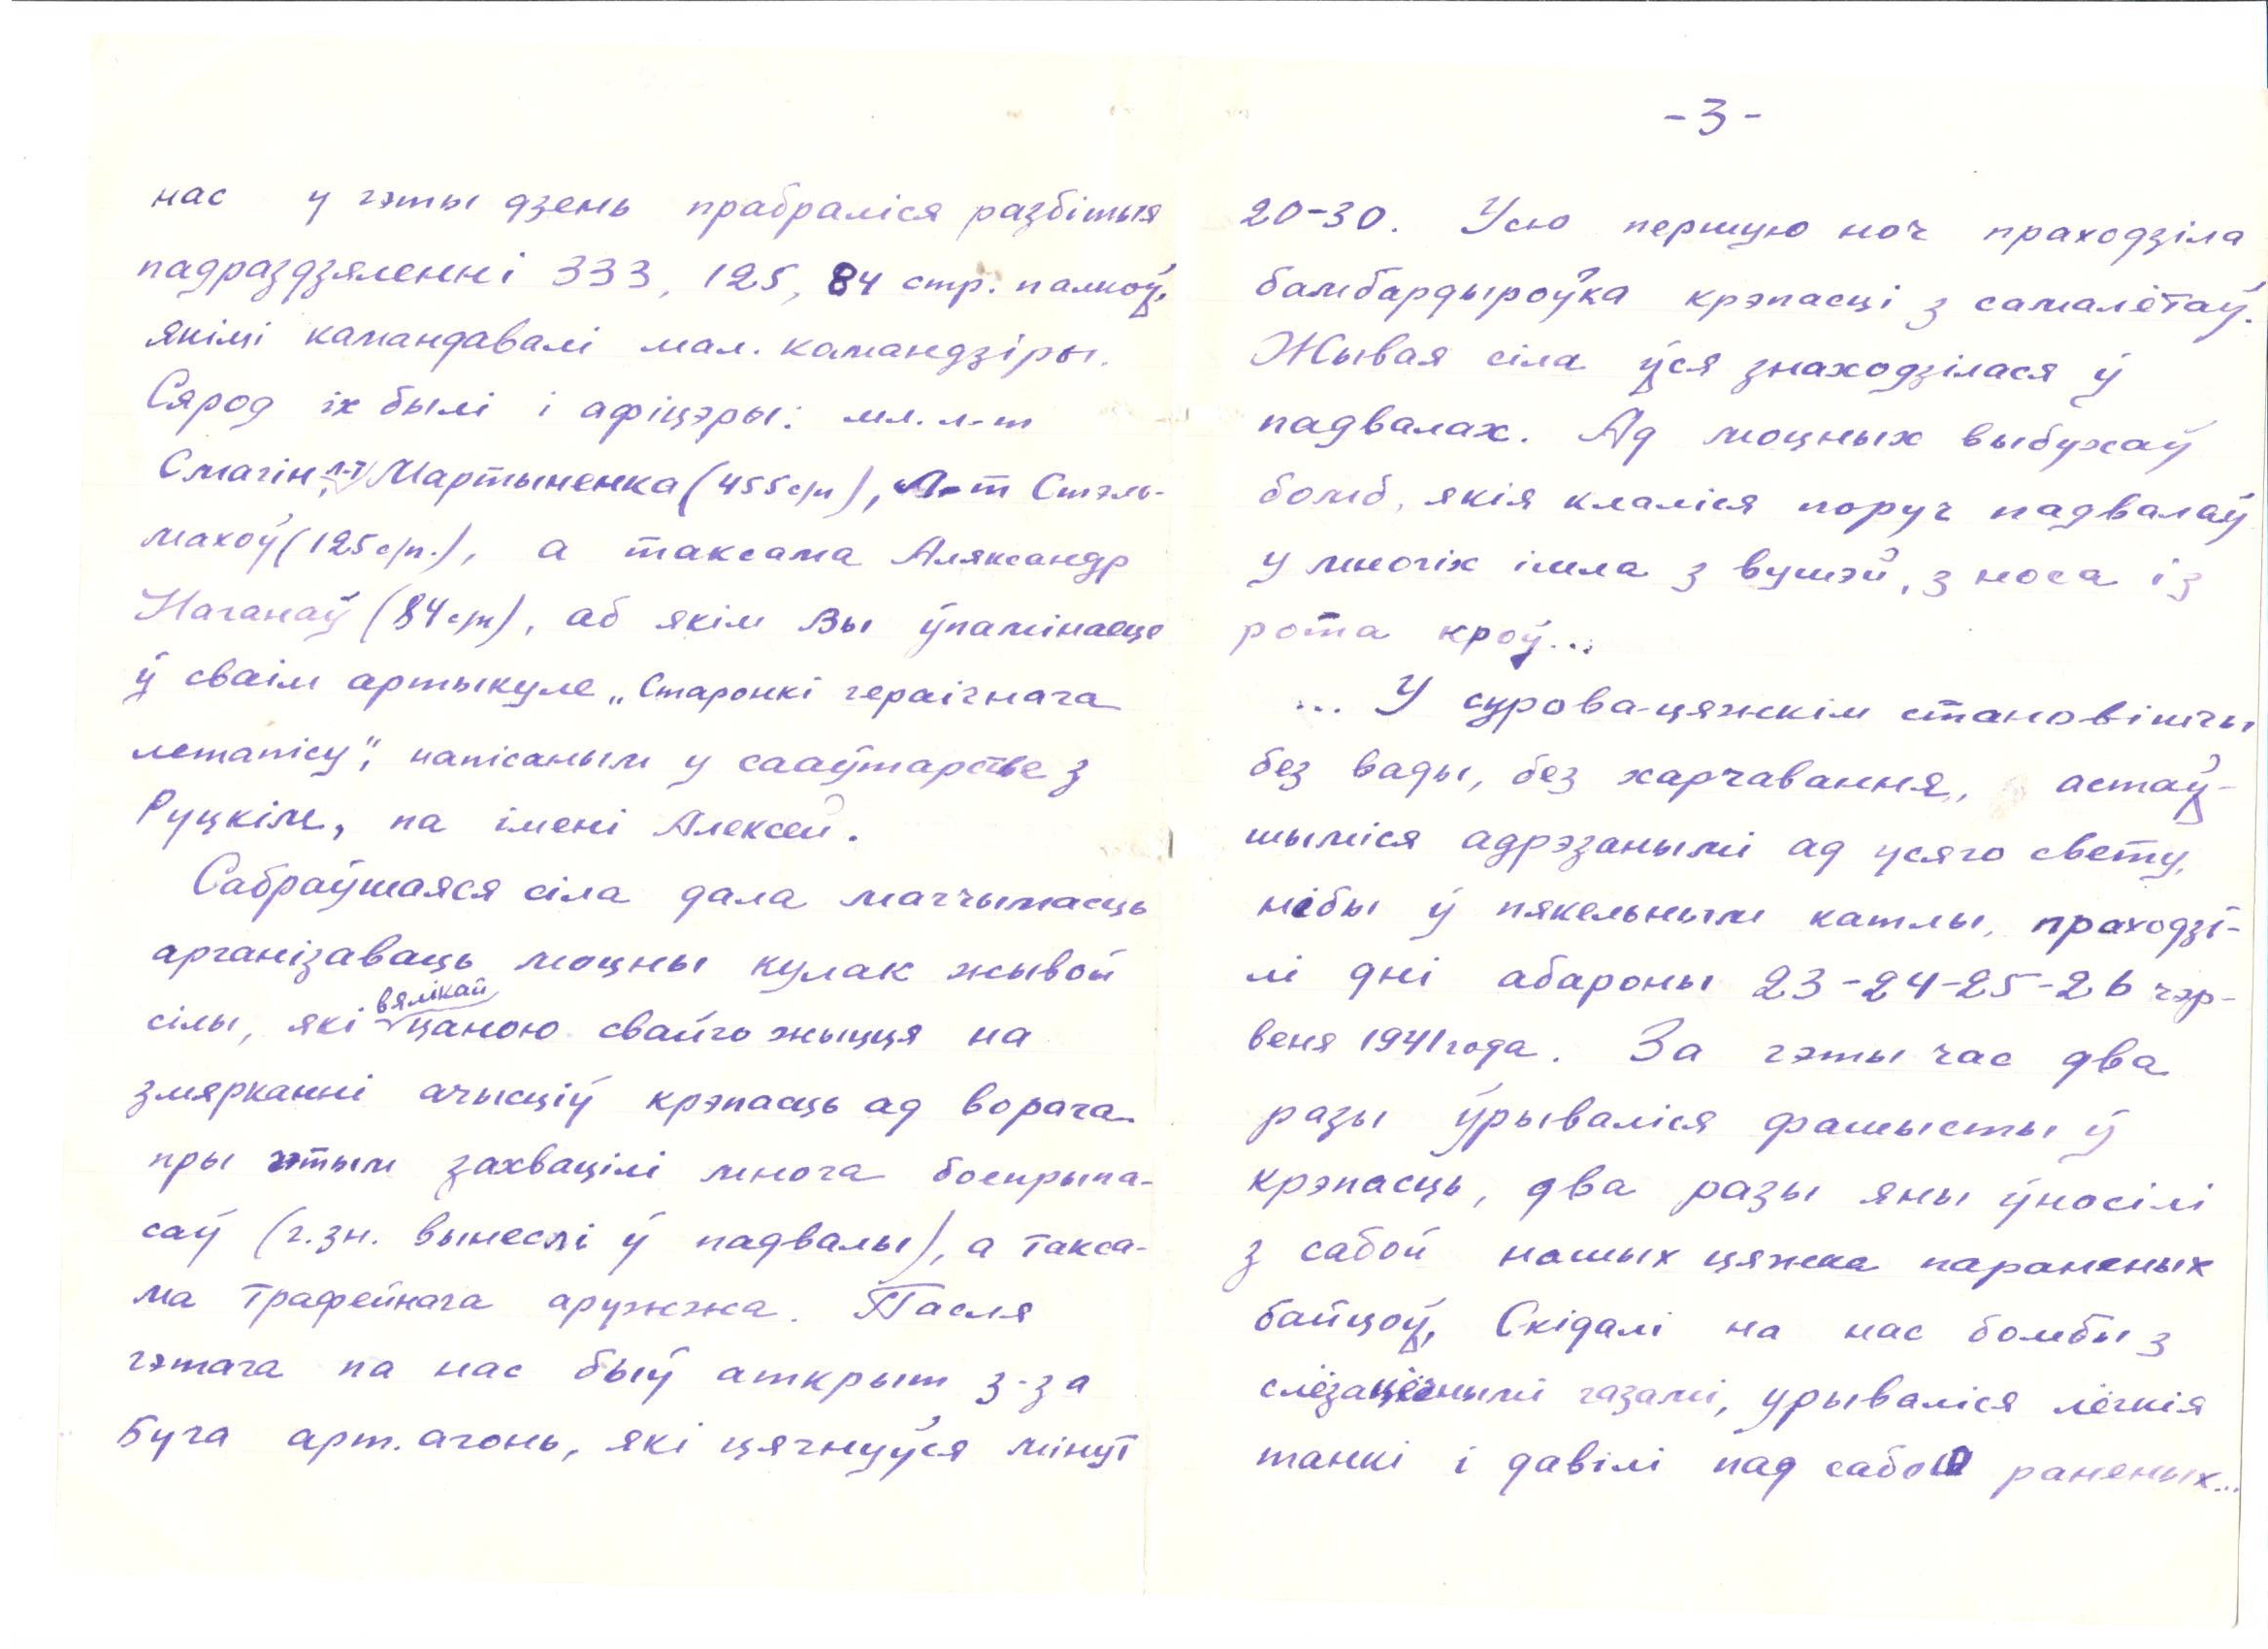 нас у гэты дзень прабраліся разбітыя
падраздзяленні 333, 125, 84 стр. палкоў,
якімі камандавалі мал. камандзіры.
Сярод іх былі і афіцэры: мл. л-т
Смагін, л-т Мартыненка (455 с/п), Л-т Стэль-
махоў (125 с/п.), а таксама Аляксандр
Наганаў (84 с/п), аб якім Вы ўпамінаеце
ў сваім артыкуле „Старонкі гераічнага
летапісу", напісаным у сааўтарстве з
Руцкім, па імені Алексей.
Сабраўшаяся сіла дала магчымасць
арганізаваць моцны кулак жывой
сілы, які вялікай цаною свайго жыцця на
змярканні ачысціў крэпасць ад ворага.
пры гэтым захвацілі многа боепрыпа-
саў (г.зн. вынеслі ў падвалы), а такса-
ма трафейнага аружжа. Пасля
гэтага па нас быў аткрыт з-за
Буга арт. агонь, які цягнуўся мінут
-3-
20-30. Усю першую ноч праходзіла
бамбардыроўка крэпасці з самалётаў.
Жывая сіла ўся знаходзілася ў
падвалах. Ад моцных выбухаў
бомб, якія клаліся поруч падвалаў
у многіх ішла з вушэй, з носа і з
рота кроў...
... У сурова-цяжкім становішчы
без вады, без харчавання, астаў-
шыміся адрэзанымі ад усяго свету,
нібы ў пякельным катлы, праходзі-
лі дні абароны 23-24-25-26 чэр-
веня 1941 года. За гэты час два
разы ўрываліся фашысты ў
крэпасць, два разы яны ўносілі
з сабой нашых цяжка параненых
байцоў, Скідалі на нас бомбы з
слёзацёчнымі газамі, урываліся лёгкія
танкі і давілі пад сабой раненых...